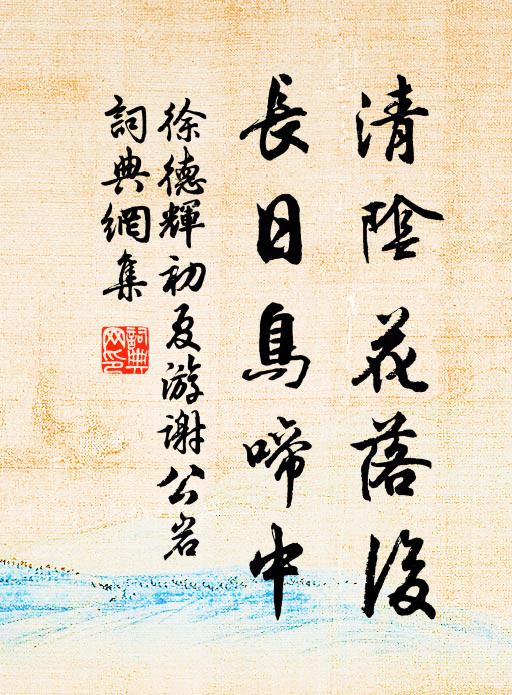 清陰花落後
長日鳥啼中
徐德輝初夏游謝公岩
詞典網集
詞典网印